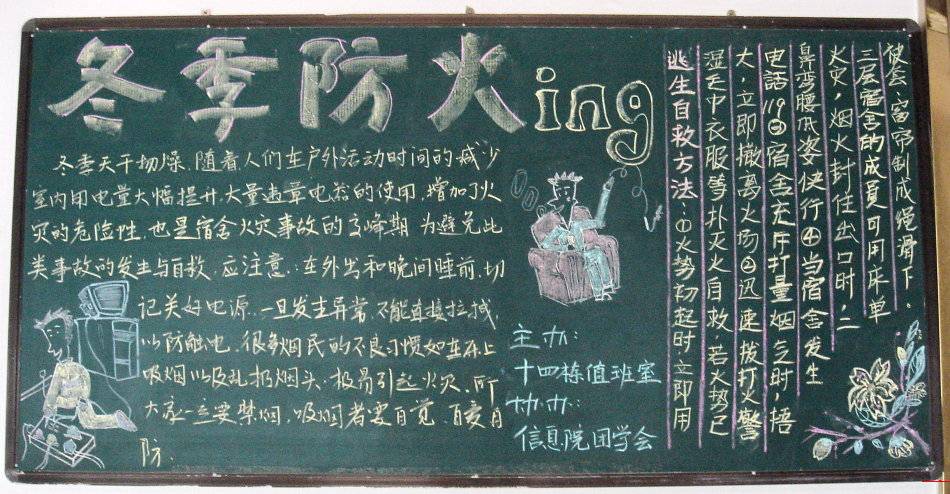 冬季防火ing
冬季天干物燥,随着人们在户外活动时间的减少
室内用电量大幅提升,大量违章电器的使用,增加了火
灾的危险性,也是宿舍火灾事故的高峰期 为避免此
类事故的发生与自救,应注意:在外出和晚间睡前,切
记关好电源,一旦发生异常,不能直接拉拭,
以防触电,很多烟民的不良习惯如在床上
吸烟以及乱扔烟头,极易引起火灾,所
大家一定要禁烟,吸烟者要自觉,自
防.
主办:
十四栋值班室
协办:
信息院团学会
逃生自救方法:①火势初起时,立即用
湿毛巾、衣服等扑灭火自救,若火势已
大,立即撤离火场②迅速拨打火警
电話119③宿舍充斥打量烟气时,捂
鼻弯腰低姿快行④当宿舍发生
火灾,烟火封住出口时,二
三层宿舍的成員可用床单
被套、窗帘制成绳滑下。